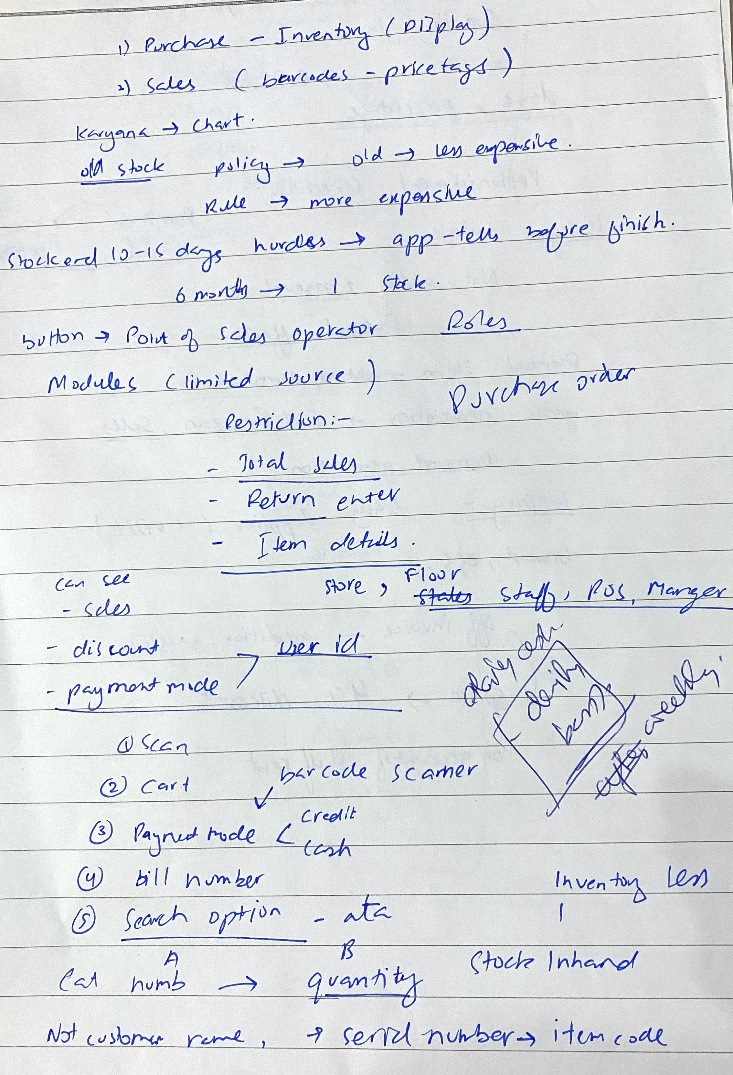 1) Purchase - Inventory (Display)
2) Sales (barcodes - pricetags)
Karyana → Chart.
old stock policy → old → less expensive.
Rule → more expensive
Stock end 10-15 days hurdles → app-tells before finish.
6 months → 1 Stock.
button → Point of sales operator Roles
Modules (limited source) Purchase order
Restriction:-
- Total sales
- Return enter
- Item details.
can see
store, Floor Staff, POS, Manger
- sales
- discount user id
- payment mode
daily cash.
daily basis
weekly.
① Scan
② Cart barcode scanner
③ Payment mode < Credit
cash
④ bill number
Inventory Less
⑤ Search option - ata
A B
Stock Inhand
Cat numb → quantity
Not customer name, → serial number → item code